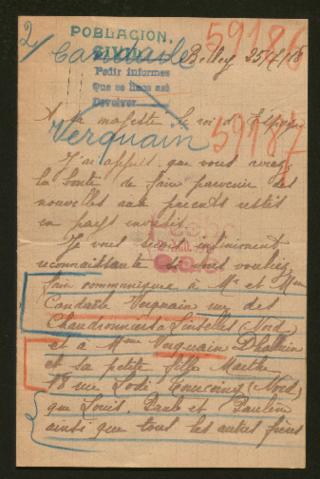 2/
POBLACION
CIVIL
Pedir informes
Que se haga así
Devolver
59186
Candaële
Belley 25/7/18
A sa majesté le roi d'Espagne
Verquain
59186
J'ai appris que vous aviez
la bonté de faire parvenir des
nouvelles aux parents restés
en pays envahi.
Je vous serais infiniment
reconnaissante si vous vouliez
faire communiquer à Mr et Mme
Candaële Verquain rue des
Chaudronniers à Linselles (Nord)
et à Mme Verquain Dhalluin
et sa petite fille Marthe
78 rue Lodi Tourcoing (Nord)
que Louis, Paule et Pauline
ainsi que tous les autres frères